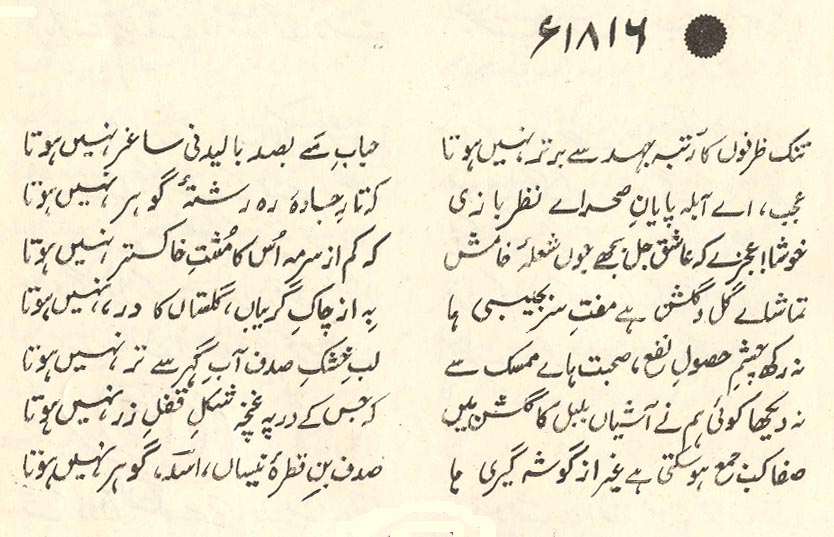 ۱۸۱۶ء
تنک ظرفوں کا رتبہ جہد سے برتر نہیں ہوتا حبابِ مے بصد بالیدنی ساغر نہیں ہوتا
عجب، اے آبلہ پایانِ صحراے نظر بازی کہ تارِ جادۂ رہ رشتۂ گوہر نہیں ہوتا
خوشا! عجزے کہ عاشق جل بجھے جوں شعلۂ خامش کہ کم از سرمہ اُس کا مُشتِ خاکستر نہیں ہوتا
تماشاے گل و گلشن ہے مفتِ سر بجیبی ہا بِہ از چاکِ گریباں، گلستاں کا در، نہیں ہوتا
نہ رکھ چشمِ حصولِ نفع، صحبت ہاے ممسک سے لبِ خشکِ صدف آبِ گہر سے تر نہیں ہوتا
نہ دیکھا کوئی ہم نے آشیاں بلبل کا گلشن میں کہ جس کے در پہ غنچہ شکلِ قفلِ زر نہیں ہوتا
صفا کب جمع ہو سکتی ہے غیر از گوشہ گیری ہا صدف بن قطرۂ نیساں، اسدؔ، گوہر نہیں ہوتا